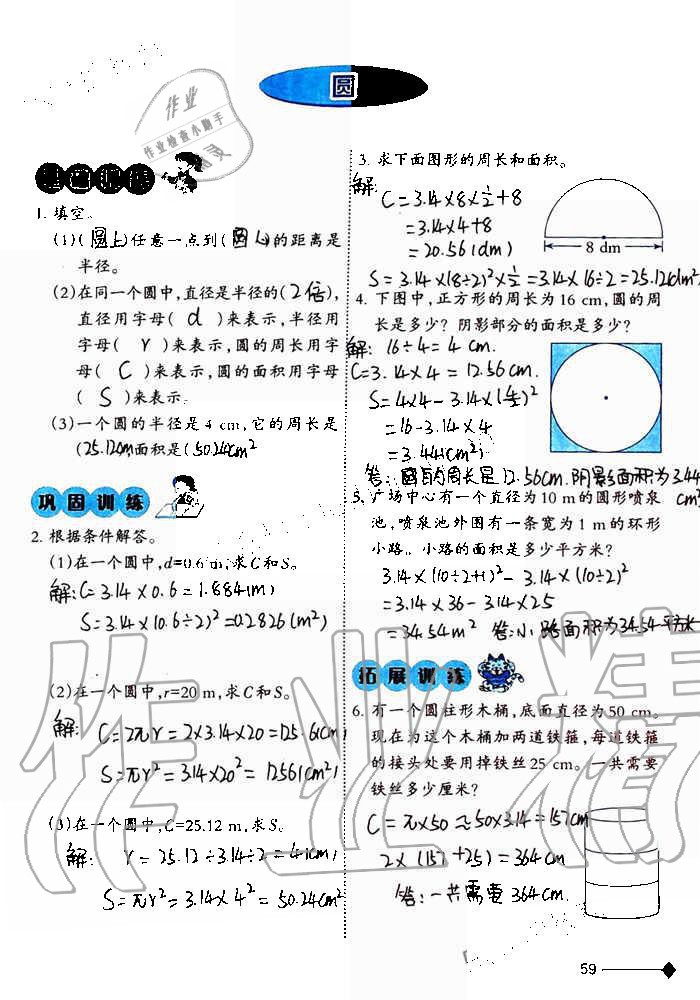 圆
作业
作业检查小助手
1. 填空。
(1)(圆上)任意一点到(圆心)的距离是
半径。
(2)在同一个圆中,直径是半径的(2倍),
直径用字母(d)来表示,半径用
字母(r)来表示,圆的周长用字
母(C)来表示,圆的面积用字母
(S)来表示。
(3)一个圆的半径是4 cm,它的周长是
(25.12cm面积是(50.24cm²
巩固训练
2. 根据条件解答。
(1)在一个圆中,d=0.6 m,求C和S。
解:C=3.14×0.6=1.884(m)
S=3.14×(0.6÷2)²=0.2826(m²)
(2)在一个圆中,r=20 m,求C和S。
解: C=2πr=2×3.14×20=125.6(cm)
S=πr²=3.14×20²=1256(cm²)
(3)在一个圆中,C=25.12 m,求S。
解: r=25.12÷3.14÷2=4(cm)
S=πr²=3.14×4²=50.24(cm²)
3. 求下面图形的周长和面积。
解:
C=3.14×8×½+8
=3.14×4+8
=20.56(dm)
8 dm
S=3.14×(8÷2)²×½=3.14×16÷2=25.12(dm²)
4. 下图中,正方形的周长为16 cm,圆的周
长是多少?阴影部分的面积是多少?
解: 16÷4=4cm.
C=3.14×4=12.56cm.
S=4×4-3.14×(4/2)²
=16-3.14×4
=3.44(cm²)
答:圆的周长是12.56cm.阴影面积为3.44
cm²
5. 广场中心有一个直径为10 m的圆形喷泉
池,喷泉池外围有一条宽为1 m的环形
小路。小路的面积是多少平方米?
3.14×(10÷2+1)²-3.14×(10÷2)²
=3.14×36-3.14×25
=34.54m² 答:小路面积为34.54平方米
拓展训练
6. 有一个圆柱形木桶,底面直径为50 cm。
现在为这个木桶加两道铁箍,每道铁箍
的接头处要用掉铁丝25 cm。一共需要
铁丝多少厘米?
C=π×50≈50×3.14=157cm
2×(157+25)=364cm
答:一共需要364cm.
作业精
59